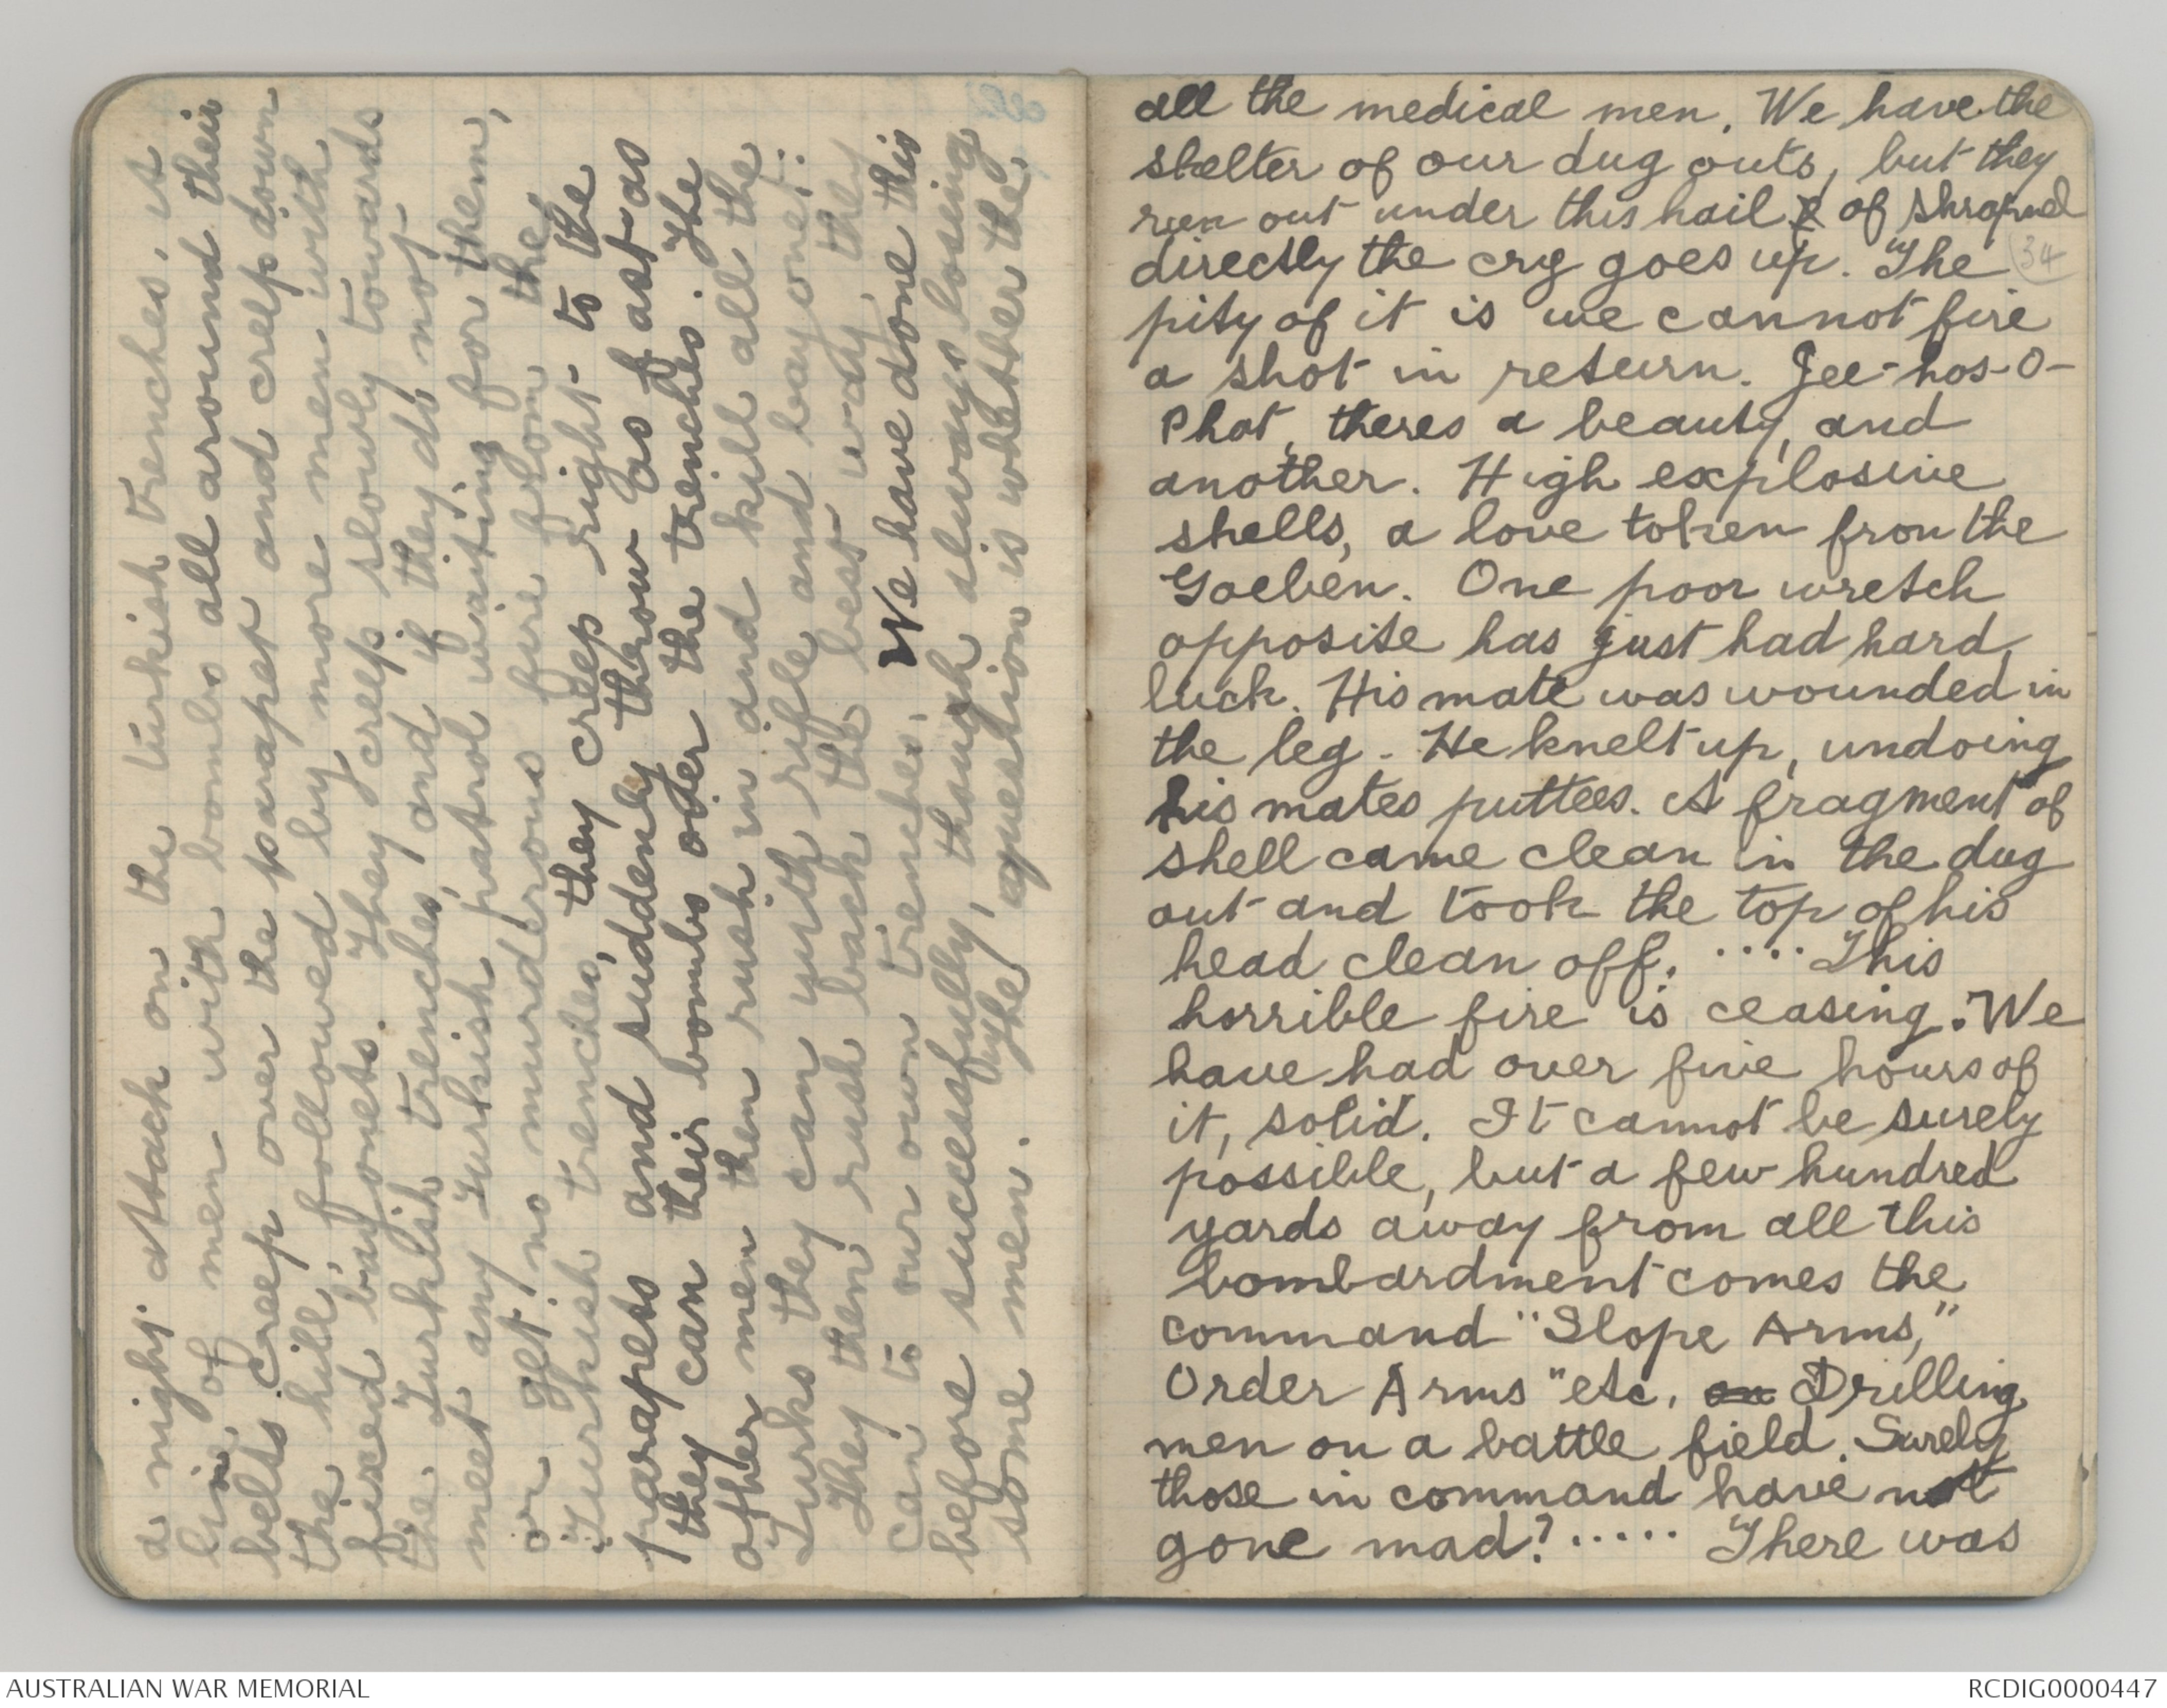 a night attack on the turkish trenches, is
line of men with bombs all around their
belts creep over the parapet and creep down
the hill, followed by more men with
fixed bayonets. They creep slowly towards
the Turkish trenches, and if they do not
meet any Turkish patrol waiting for them,
or get no murderous fire from the
Turkish trenches, they creep right to the
parapets and suddenly throw as fast as
they can their bombs over the trenches. The
other men then rush in and kill all the
Turks they can with rifle and bayonet.
They then rush back the best way they
can to our own trenches. We have done this
before successfully, though always losing
some men. The question is whether the
all the medical men. We have the
shelter of our dug outs, but they
run out under this hail of shrapnel
directly the cry goes up. The
34
pity of it is we cannot fire
a shot in return. Jee-hos-O-
Phat, theres a beauty, and
another. High explosive
shells, a love token from the
Goeben. One poor wretch
opposite has just had hard
luck. His mate was wounded in
the leg - He knelt up, undoing
his mates puttees. A fragment of
shell came clean in the dug
out and took the top of his
head clean off. .... This
horrible fire is ceasing. We
have had over five hours of
it, solid. It cannot be surely
possible, but a few hundred
yards away from all this
bombardment comes the
command "Slope Arms,"
Order Arms" etc, Drilling
men on a battle field. Surely
those in command have not
gone mad? ..... There was
AUSTRALIAN WAR MEMORIAL
RCDIG0000447